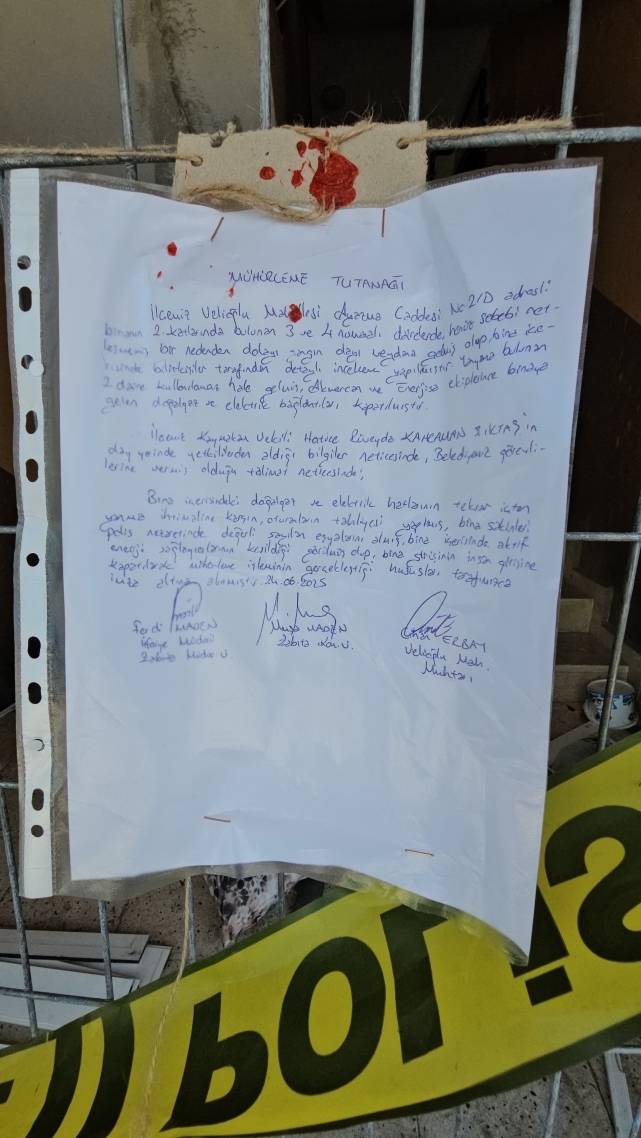 MÜHÜRLEME TUTANAĞI
İlçemiz Velioğlu Mahallesi Caddesi No:21/D adresli
binanın 2. katlarında bulunan 3 ve 4 numaralı dairelerde, henüz sebebi net-
leşmemiş bir nedenden dolayı yangın dayı meydana gelmiş olup, bina içe-
risinde bilirkişiler tarafından detaylı inceleme yapılmıştır. bulunan
2 daire kullanılamaz hale gelmiş, Akmercan ve Enerjisa ekiplerince binaya
gelen doğalgaz ve elektrik bağlantıları kapatılmıştır.
İlçemiz Kaymakam Vekili Hatice Rüveyda KAHRAMAN 'ın
olay yerinde yetkililerden aldığı bilgiler neticesinde, Belediyemiz görevli-
lerine vermiş olduğu talimat neticesinde;
Bina içerisindeki doğalgaz ve elektrik hatlarının tekrar içten
yanma ihtimaline karşın, oturanların tahliyesi yapılmış, bina sakinleri
polis nezaretinde değerli sayılan eşyalarını almış, bina içerisinde aktif
enerji sağlayıcılarının kesildiği görülmüş olup, bina girişinin insan girişine
kapatılarak mühürleme işleminin gerçekleştiği hususları tarafımızca
imza altına alınmıştır. 24.06.2025
Ferdi MADEN
İtfaiye Müdürü
Zabıta Müdür V.
Musa MADEN
Zabıta Kom. V.
ERBAY
Velioğlu Mah.
Muhtarı
POLİS